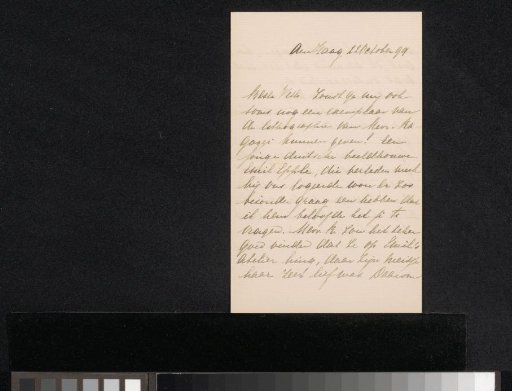 den Haag 22 October 99
Beste Veth. Zoudt ge mij ook
soms nog een exemplaar van
de lithographie van Mevr.
kunnen geven? Een
jonge duitsche beeldhouwer
Emil Epple, die verleden week
bij ons logeerde wou er zoo
graag een hebben dat
ik hem beloofde het je te
vragen. Mevr. K. zou het zeker
goed vinden dat ze op Emil's
atelier hing, daar zijn meisje
haar zeer lief was. Daarom